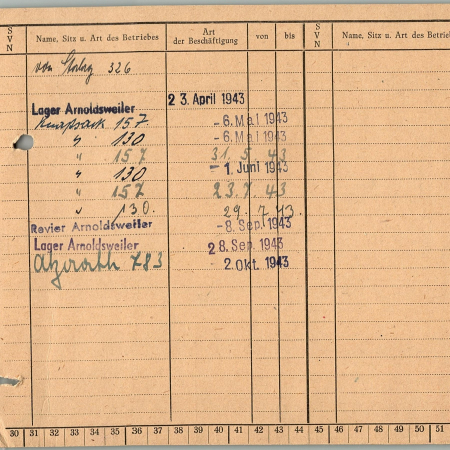 S V N Name, Sitz u. Art des Betriebes Art der Beschäftigung von bis S V N Name, Sitz u. Art des Betrieb
von Stalag 326
Lager Arnoldsweiler 23. April 1943
Knapsack 157 - 6. Mai 1943
" 130 - 6. Mai 1943
" 157 31. 5. 43
" 130 - 1. Juni 1943
" 157 23. 7. 43
" 130. 29. 7. 43.
Revier Arnoldsweiler - 8. Sep. 1943
Lager Arnoldsweiler 28. Sep. 1943
783 - 2. Okt. 1943
30 31 32 33 34 35 36 37 38 39 40 41 42 43 44 45 46 47 48 49 50 51